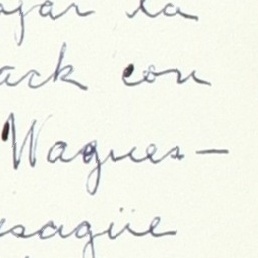 ogar la
ack con
Wagues-
esagüe